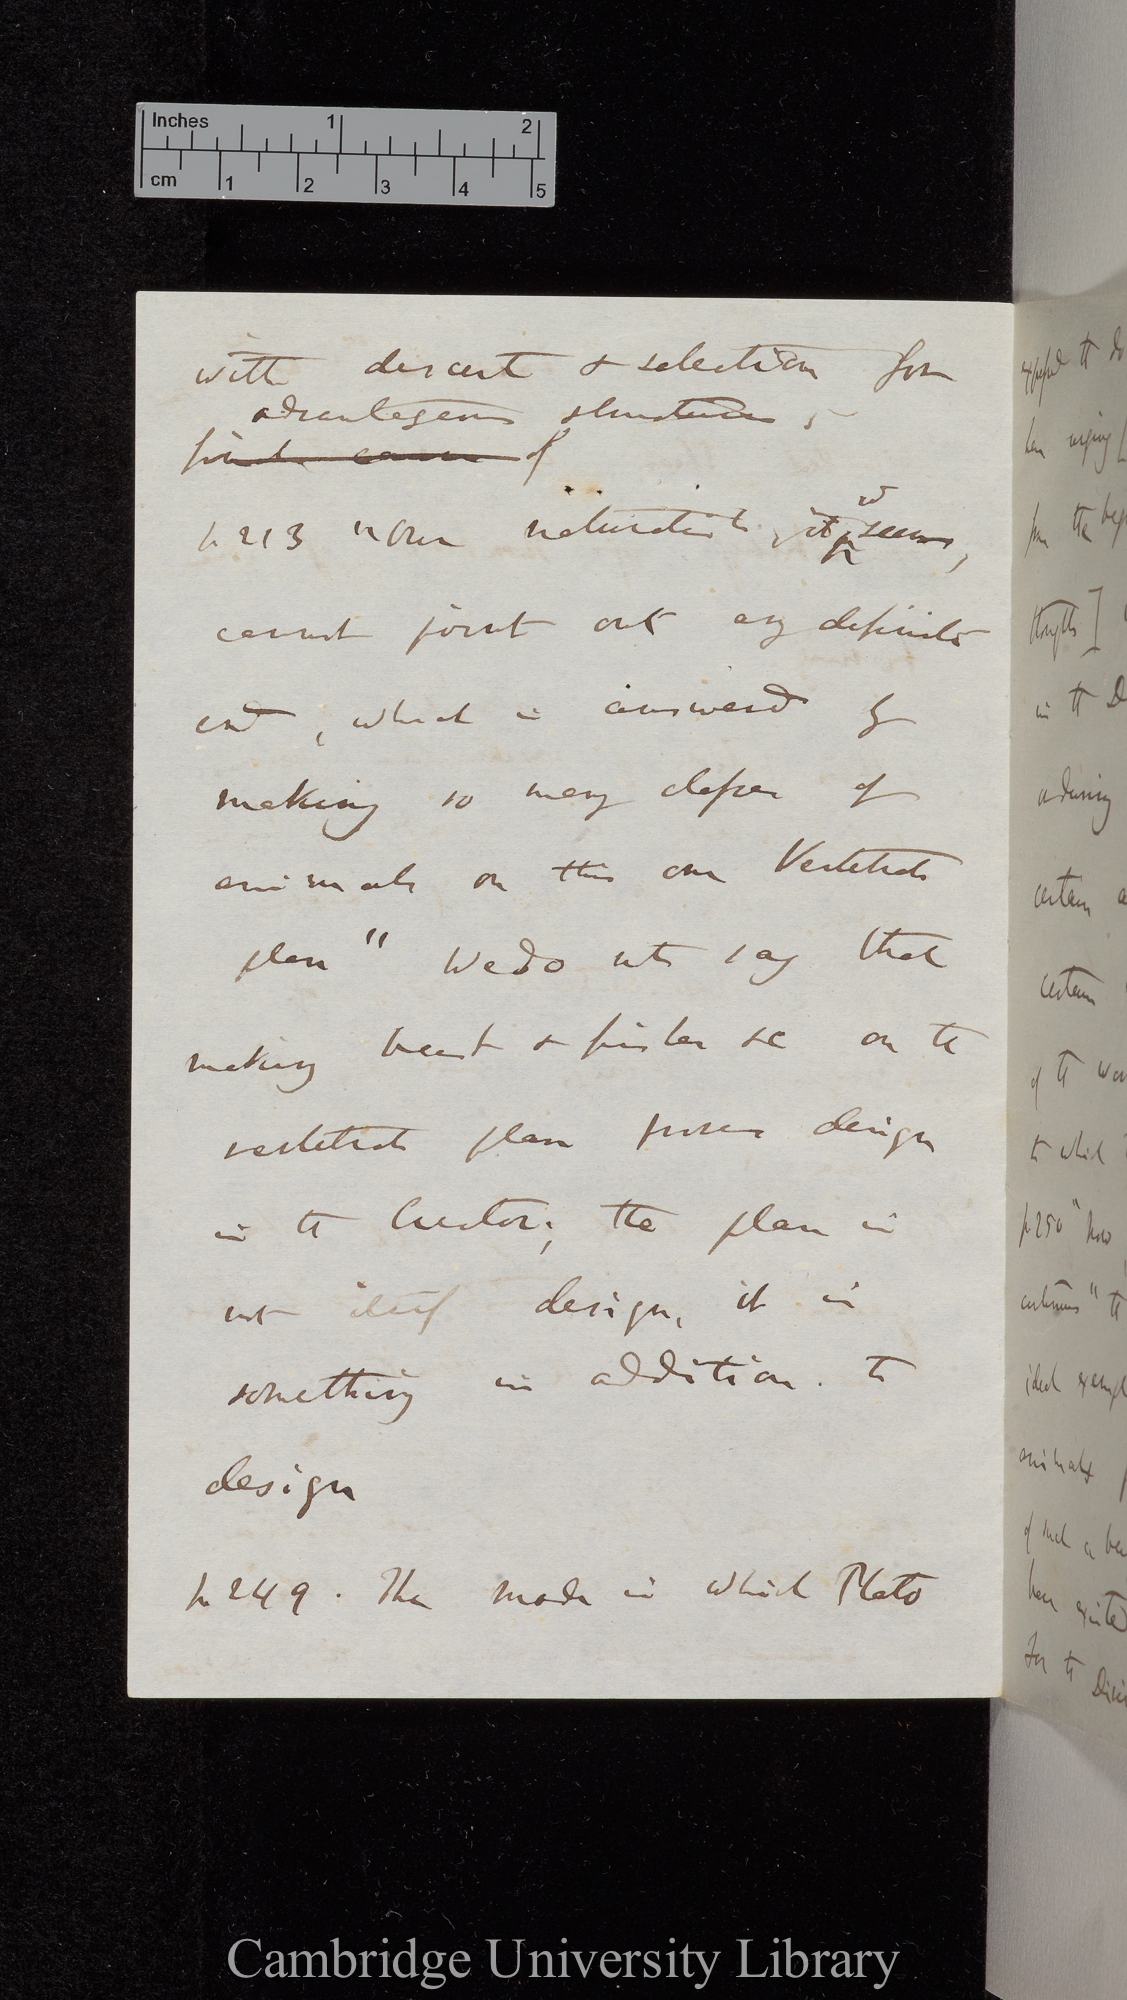 Inches 1 2
cm 1 2 3 4 5
with descent & selection from
advantageous structures,
final cause of
p 213 "Our naturalist, it wd seem,
cannot point out any definite
end, which is answered by
making so many classes of
animals on this one Vertebrate
plan" We do not say that
making beast & fishes &c on the
vertebrate plan proves design
in the Creator; the plan is
not itself design, it is
something in addition. to
design
p 249. The mode in which Plato
to do
urging
from the
thoughts]
in the D
certain
certain
of the
to which
p 250 "how
" the
ideal
animals
of such a
have existed
for the
Cambridge University Library